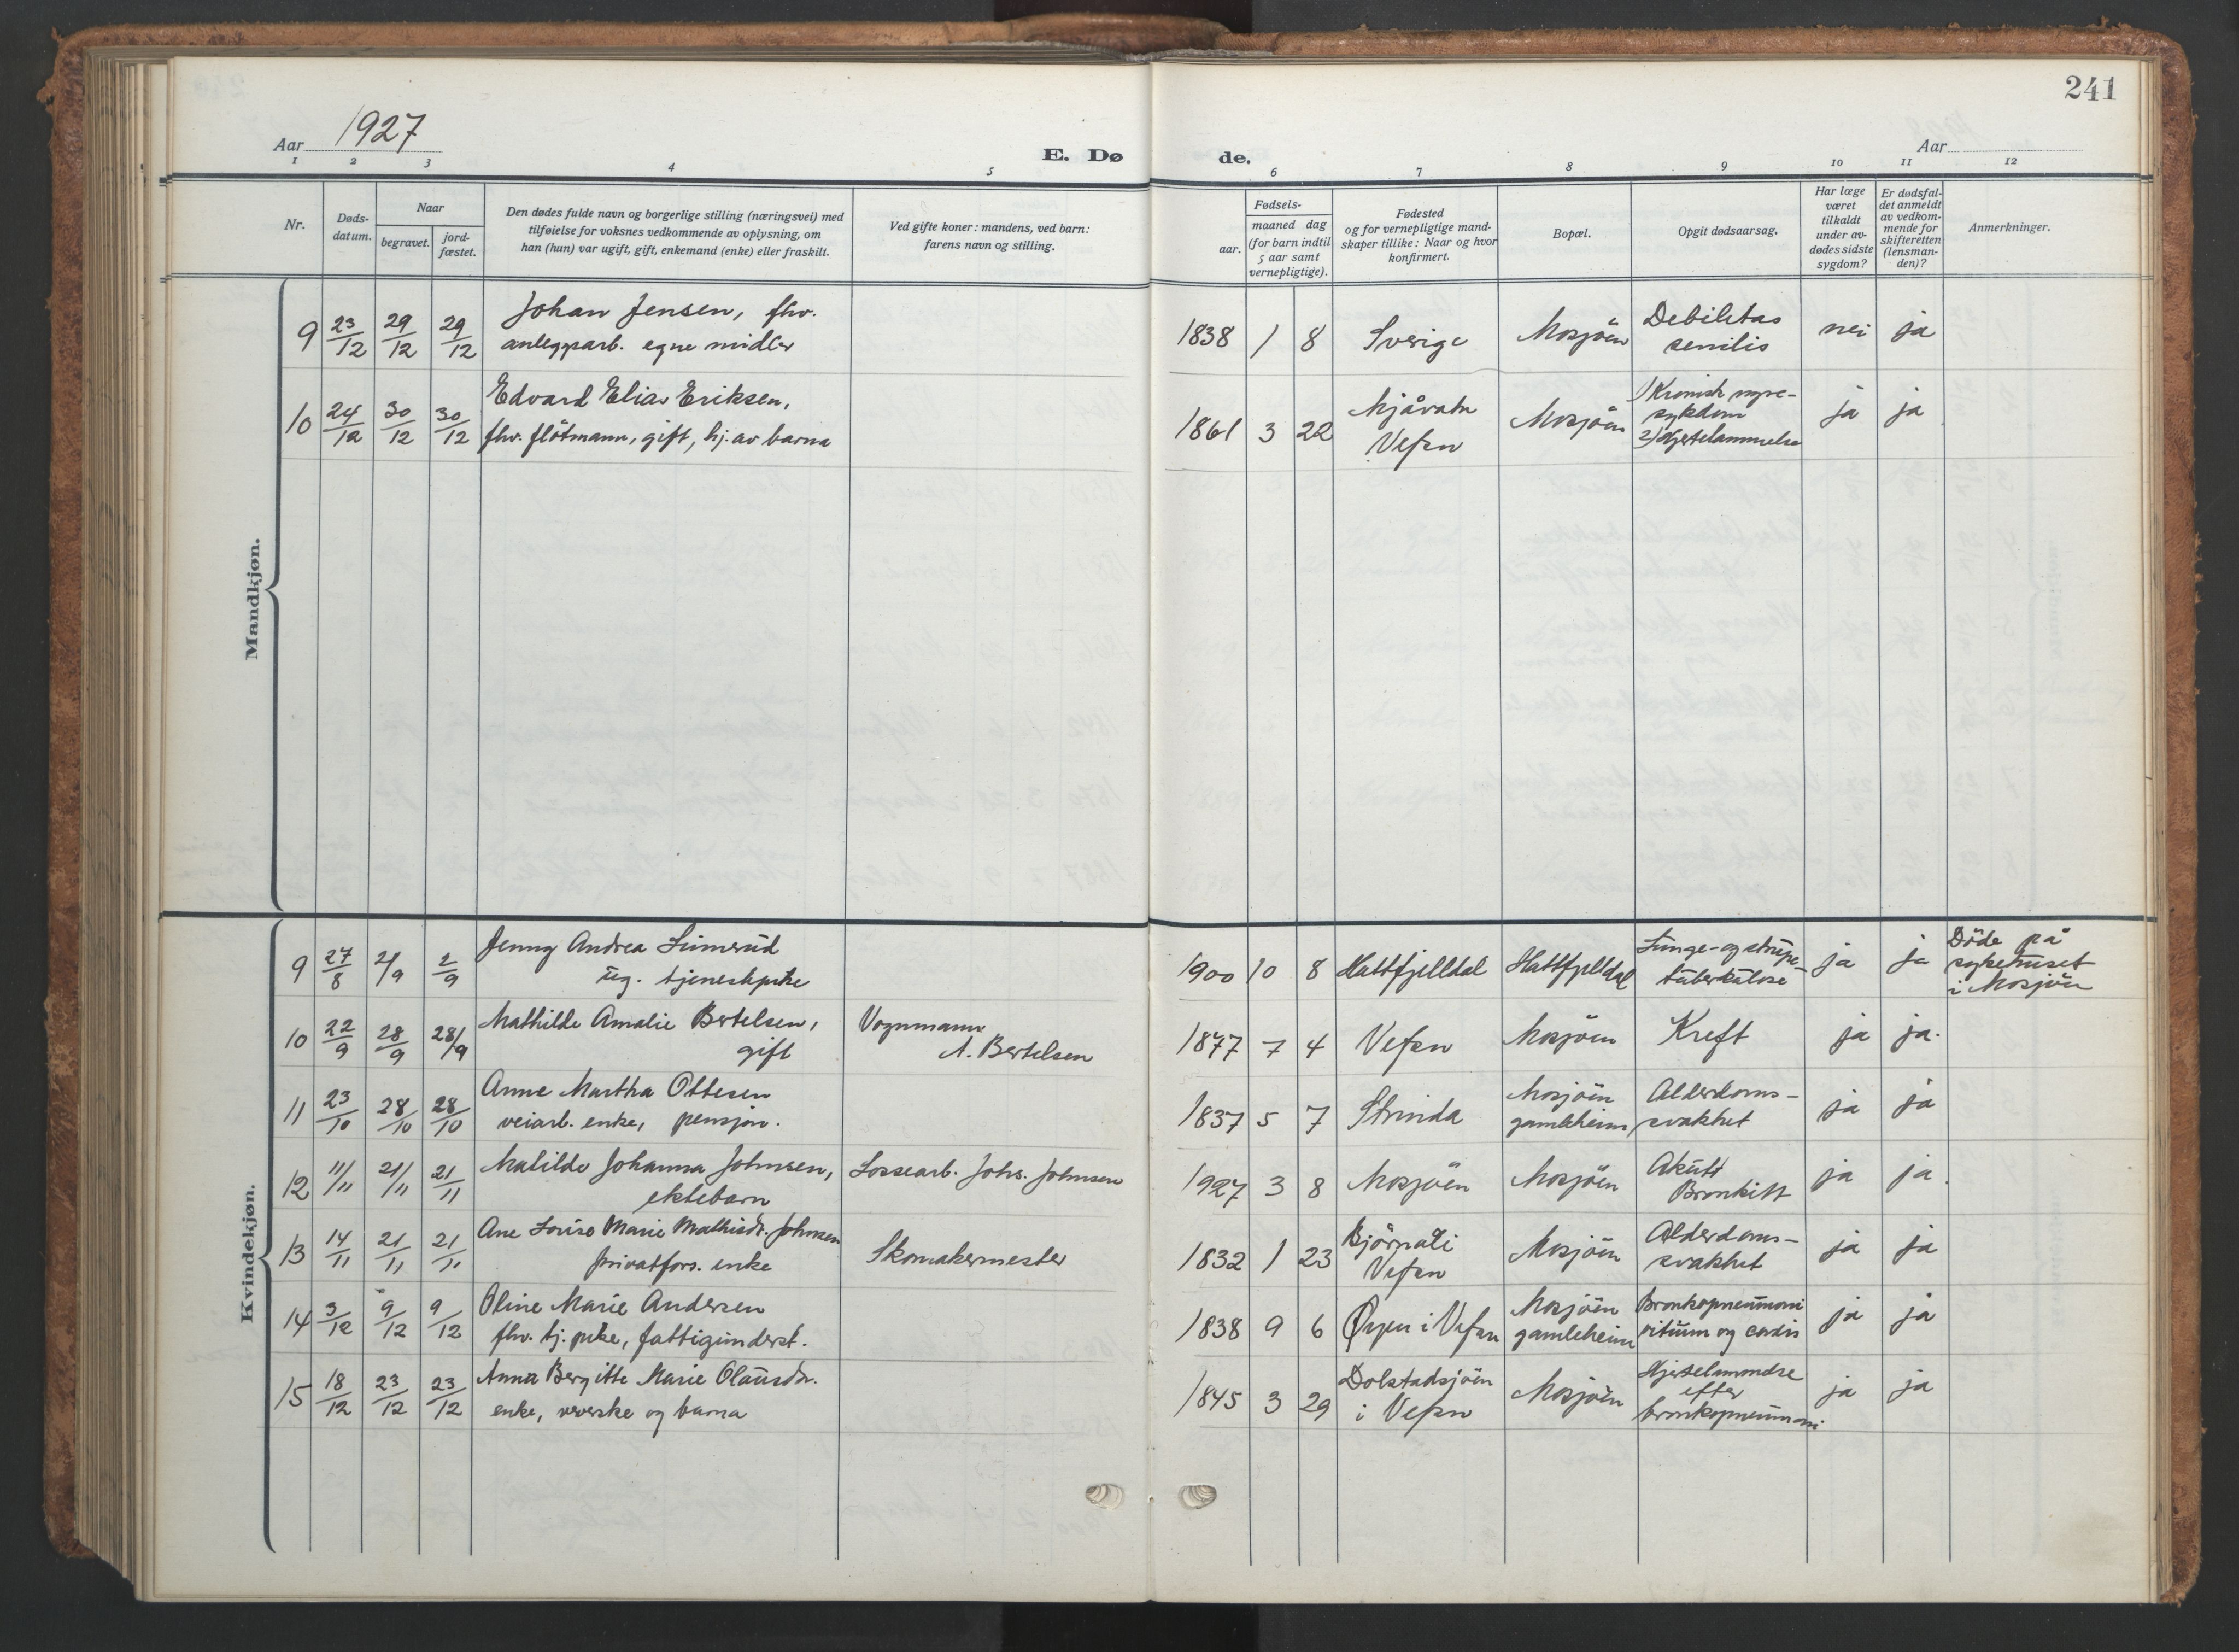 241
Aar 1927
E. Dø
de.
Aar
1 2 3 4 5 6 7 8 9 10 11 12
Nr.
Døds-
datum.
Naar
begravet.
jord-
fæstet.
Den dødes fulde navn og borgerlige stilling (næringsvei) med
tilføielse for voksnes vedkommende av oplysning, om
han (hun) var ugift, gift, enkemand (enke) eller fraskilt.
Ved gifte koner: mandens, ved barn:
farens navn og stilling.
aar.
Fødsels-
maaned dag
(for barn indtil
5 aar samt
vernepligtige).
Fødested
og for vernepligtige mand-
skaper tillike: Naar og hvor
konfirmert.
Bopæl.
Opgit dødsaarsag.
Har læge
været
tilkaldt
under av-
dødes sidste
sygdom?
Er dødsfal-
det anmeldt
av vedkom-
mende for
skifteretten
(lensman-
den)?
Anmerkninger.
Mandkjøn.
9 23/12 29/12 29/12
Johan Jensen, fhv.
anleggsarb. egne midler
1838 1 8 Sverige Mosjöen
Debilitas
senilis
nei ja
10 24/12 30/12 30/12
Edvard Elias Eriksen,
fhv. flötmann, gift, hj. av barna
1861 3 22
Mjåvatn
Vefsn
Mosjöen
1) Kronisk nyre-
sykdom
2) Hjertelammelse
ja ja
Kvindekjøn.
9 27/8 2/9 2/9
Jenny Andrea
ug. tjenestepike
1900 10 8 Hattfjelldal Hattfjelldal
Lunge- og strupe-
tuberkulose
ja ja
Döde på
sykehuset
i Mosjöen
10 22/9 28/9 28/9
Mathilde Amalie Bertelsen,
gift
Vognmann
A. Bertelsen
1877 7 4 Vefsn Mosjöen Kreft ja ja.
11 23/10 28/10 28/10
Anne Martha Ottesen
veiarb. enke, pensjon.
1837 5 7 Strinda
Mosjöen
gamleheim
Alderdoms-
svakhet
ja ja
12 11/11 21/11 21/11
Matilde Johanna Johnsen,
ektebarn
Lossearb. Johs. Johnsen
1927 3 8 Mosjöen Mosjöen
Akutt
Bronkitt
ja ja.
13 14/11 21/11 21/11
Ane Lovise Marie Mathisdr. Johnsen
privatfors. enke
Skomakermester
1832 1 23
Björnåli
Vefsn
Mosjöen
Alderdoms-
svakhet
ja ja
14 3/12 9/12 9/12
Oline Marie Andersen
fhv. tj. pike, fattigunderst.
1838 9 6 Øyen i Vefsn
Mosjöen
gamleheim
Bronkopneumoni
vitium og cordis
ja ja
15 18/12 23/12 23/12
Anna Bergitte Marie Olausdr.
enke, veverske og barna
1845 3 29
Dolstadsjöen
i Vefsn
Mosjöen
efter
bronkopneumoni
ja ja